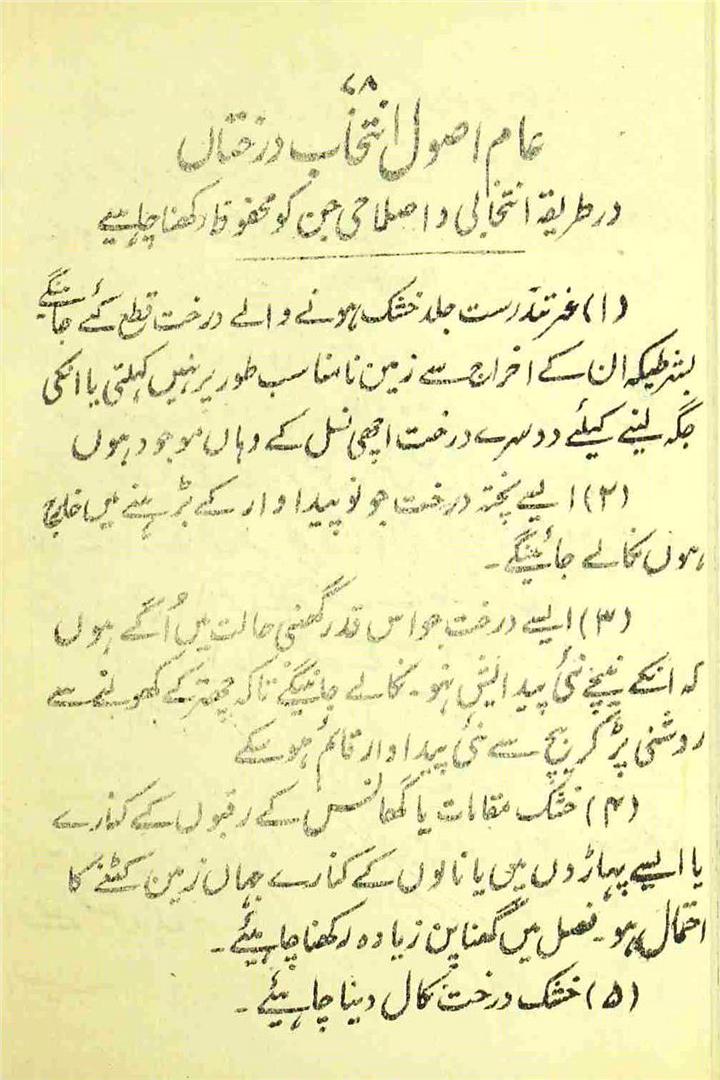 ۶۸
عام اصول انتخاب درختاں
در طریقہ انتخابی و اصلاحی جن کو محفوظ رکھنا چاہیے
(۱) غیر تندرست جلد خشک ہونے والے درخت قطع کئے جائینگے
بشرطیکہ ان کے اخراج سے زمین نامناسب طور پر نہیں کہلتی یا انکی
جگہ لینے کیلئے دوسرے درخت اچھی نسل کے وہاں موجود ہوں
(۲) ایسے پختہ درخت جو نو پیداوار کے بڑہنے میں خلجان
ہوں نکالے جائینگے۔
(۳) ایسے درخت جو اس قدر گھنی حالت میں اُگے ہوں
کہ انکے نیچے نئی پیدایش نہو۔ نکالے جائینگے تاکہ چھتر کے کھولنے سے
روشنی پڑ کر بیچ سے نئی پیداوار قائم ہو سکے
(۴) خشک مقامات یا گھانس کے رقبوں کے کنارے
یا ایسے پہاڑوں میں یا نالوں کے کنارے جہاں زمین کٹنے کا
احتمال ہو۔ فصل میں گھنا پن زیادہ رکھنا چاہیئے۔
(۵) خشک درخت نکال دینا چاہیئے۔